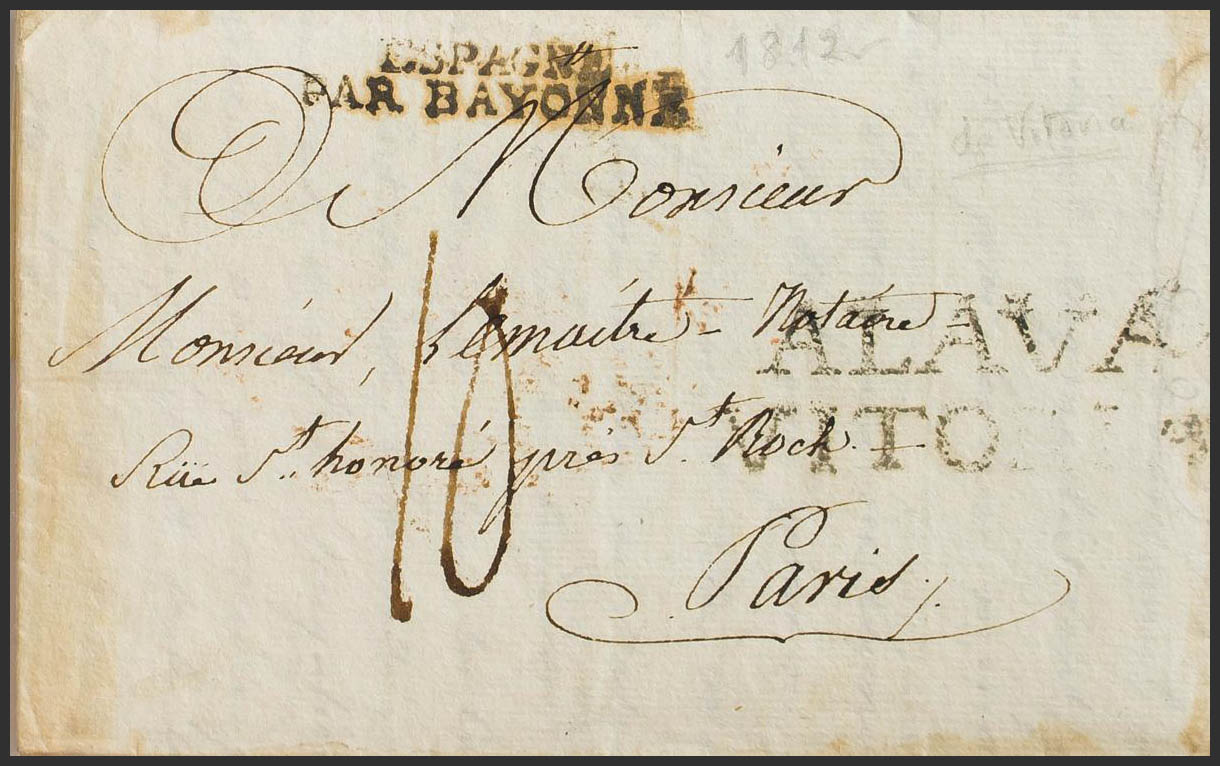 ESPAGNE
PAR BAYONNE
1812
de Vitoria
A Monsieur
Monsieur, Lemaitre - Notaire -
ALAVA
VITORIA
10
Rüe St. honoré près St. Roch -
Paris